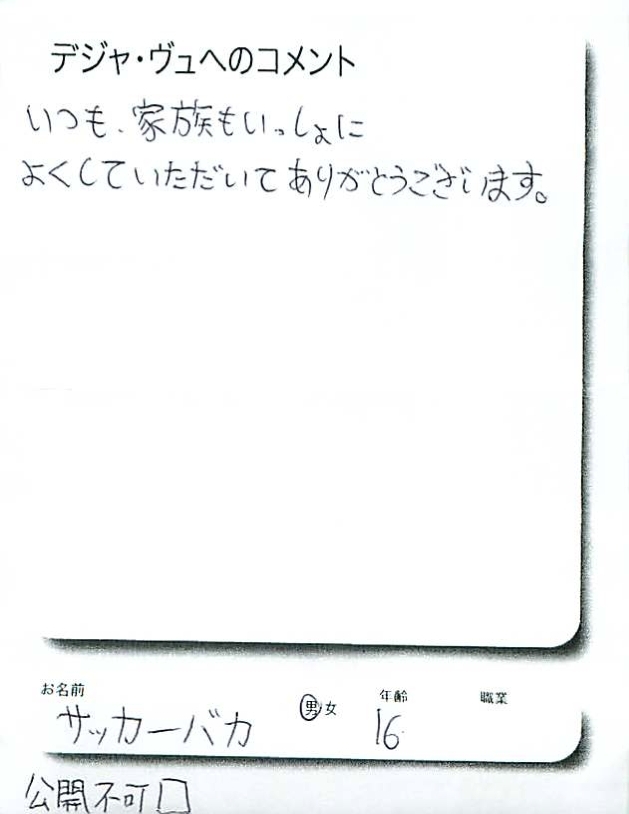 デジャ・ヴュへのコメント
いつも、家族もいっしょに
よくしていただいてありがとうございます。
お名前 男/女 年齢 職業
サッカーバカ 16
公開不可□